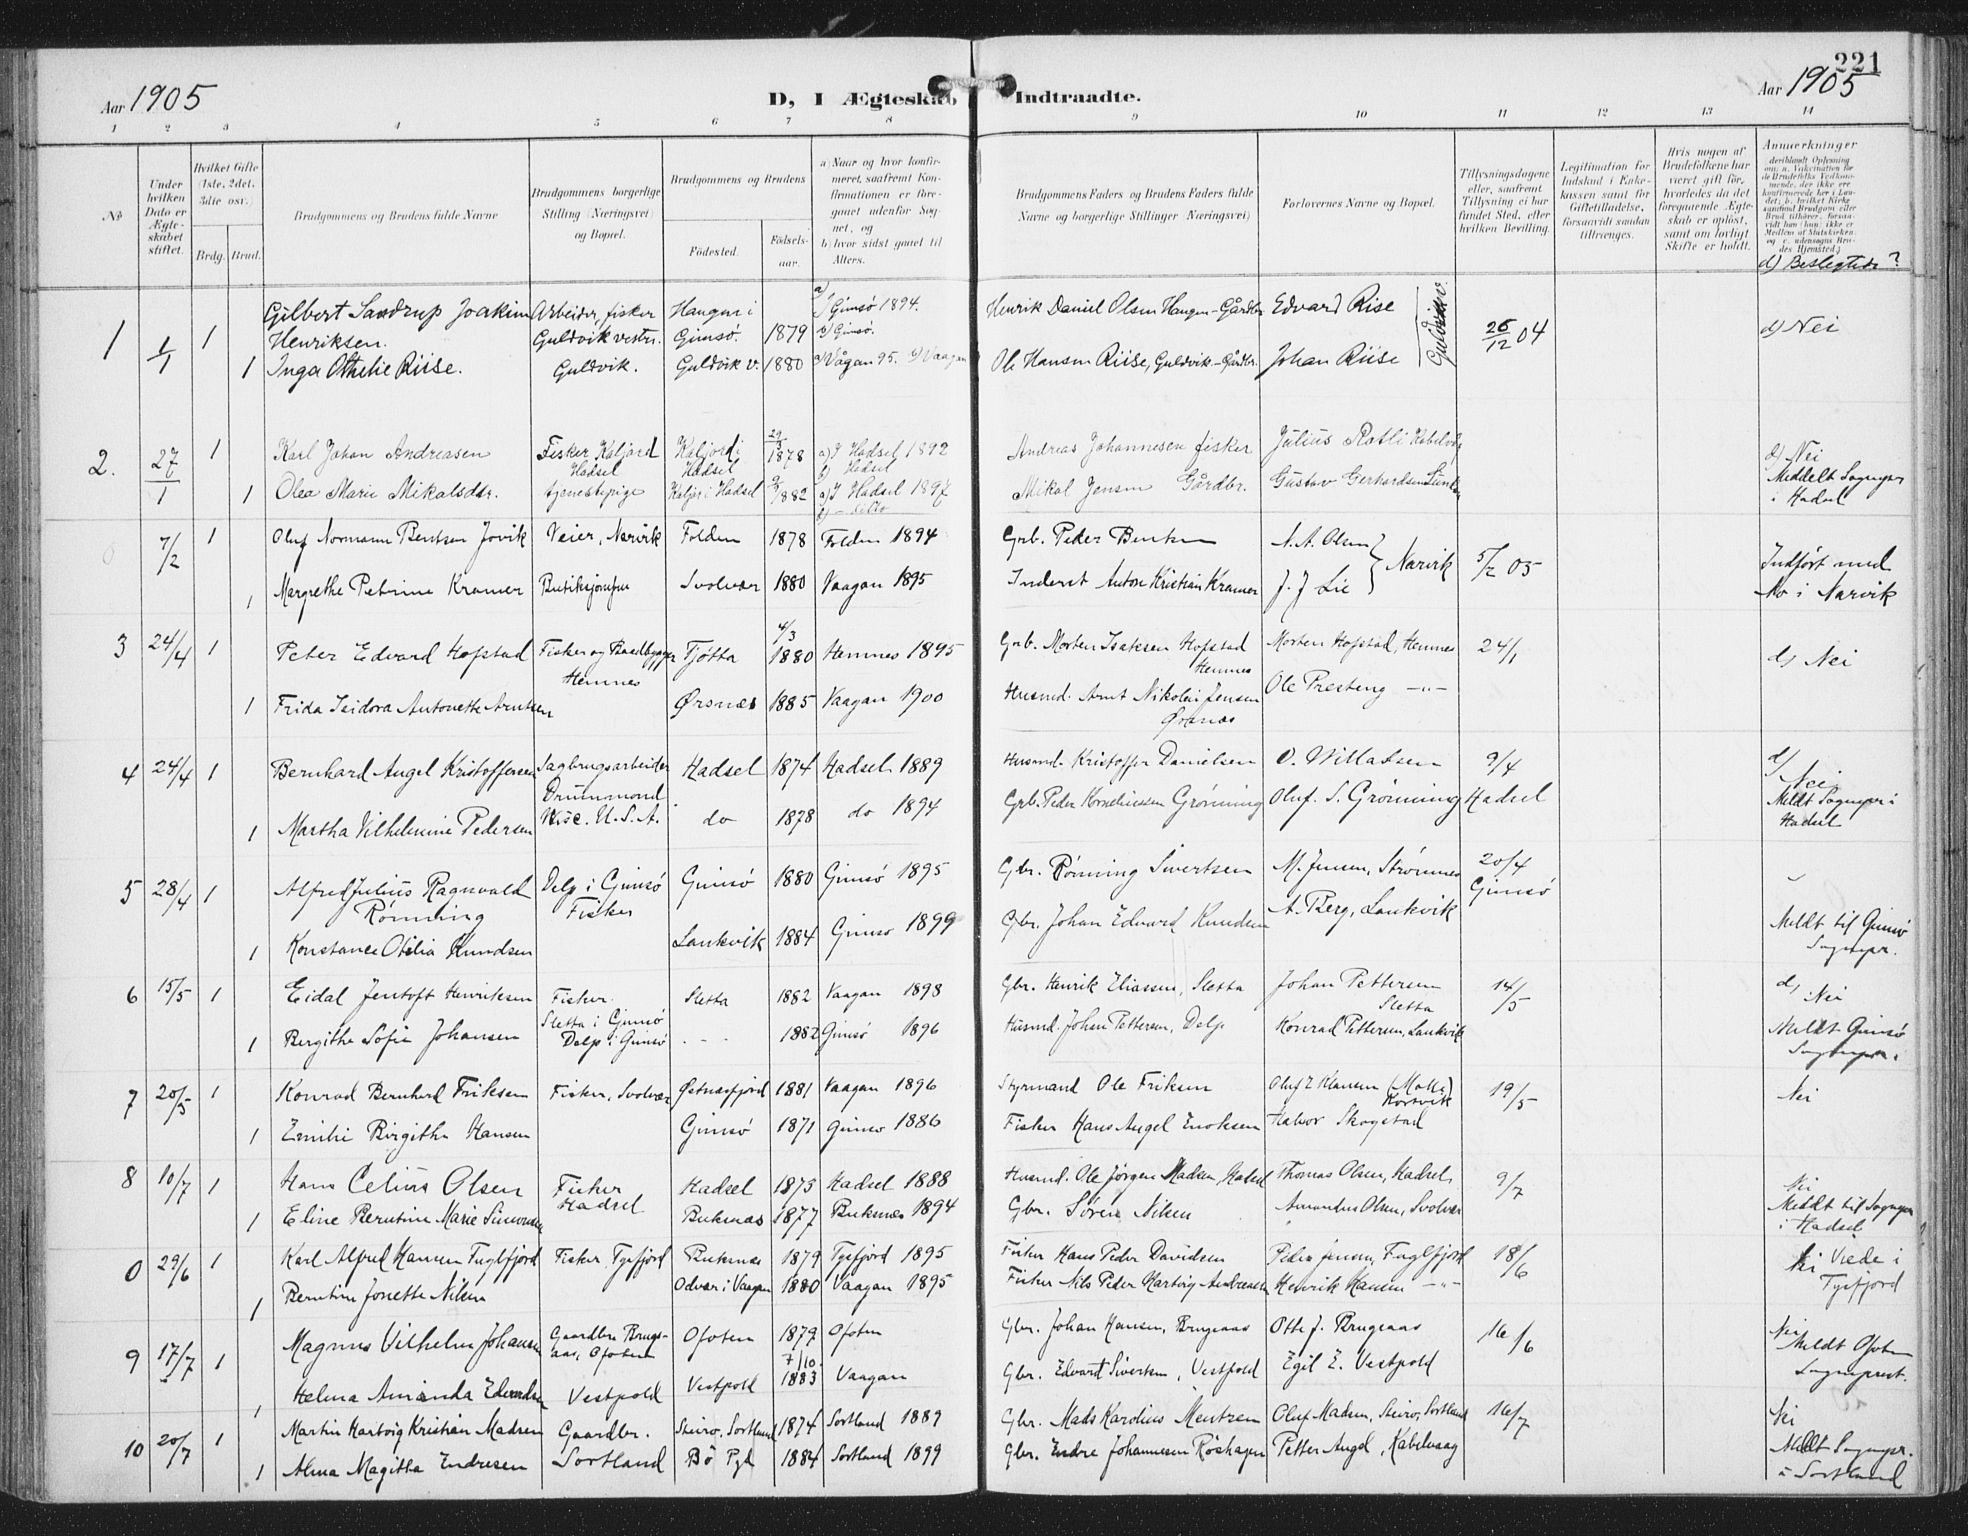 221
Aar 1905
D, I Ægteskab Indtraadte.
Aar 1905
1 2 3 4 5 6 7 8 9 10 11 12 13 14
No
Under hvilken Dato er Ægteskabet stiftet.
Hvilket Gifte (1ste, 2det, 3die osv.)
Brdg. Brud.
Brudgommens og Brudens fulde Navne
Brudgommens borgerlige Stilling (Næringsvei) og Bopæl.
Brudgommens og Brudens
Fødested.
Fødselsaar.
a) Naar og hvor konfirmeret, saafremt Konfirmationen er foregaaet udenfor Sognet, og
b) hvor sidst gaaet til Alters.
Brudgommens Faders og Brudens Faders fulde Navne og borgerlige Stillinger (Næringsvei)
Forlovernes Navne og Bopæl.
Tillysningsdagene eller, saafremt Tillysning ei har fundet Sted, efter hvilken Bevilling.
Legitimation for Indskud i Enkekassen samt for Giftetilladelse, forsaavidt saadan tiltrænges.
Hvis nogen af Brudefolkene har været gift før, hvorledes da det foregaaende Ægteskab er opløst, samt om lovligt Skifte er holdt.
Anmerkninger
d) Beslegtede?
1 1/1 1 Gilbert Sandrup Joakim Henriksen. Arbeider, fisker Guldvik vestre. Haugen i Gimsö. 1879 a) Gimsö 1894. b) Gimsö. Henrik Daniel Olsen Haugen - Gårdbr. Edvard Rise Guldvik v. 26/12 04 d) Nei
1 Inga Othelie Riise. Guldvik. Guldvik v. 1880 a) Vågan 95. b) Vaagan Ole Hansen Riise, Guldvik - Gårdbr. Johan Riise
2. 27/1 1 Karl Johan Andreasen Fisker Kaljord Hadsel Kaljord i Hadsel 29/ 1878 a) I Hadsel 1892 b) Hadsel Andreas Johannesen fisker Julius Rotli Kabelvåg d) Nei
1 Olea Marie Mikalsdtr. tjenestepige Kaljor i Hadsel 1882 a) I Hadsel 1897 b) - ditto Mikal Jensen Gårdbr. Gustav Gerhardsen Meddelt Sogneprs i Hadsel
7/2 1 Oluf Normann Bentsen Jovik Veier, Narvik Folden 1878 Folden 1894 Grb. Peder Bentsen A. A. Olsen Narvik 5/2 05 Indført med
1 Margrethe Petrine Kramer Butiksjomfru Svolvær 1880 Vaagan 1895 Inderst Anton Kristian Kramer J. J. Lie No i Narvik
3 24/4 1 Peter Edvard Hofstad Fisker og Baadbygger Hemnes Tjøtta 4/3 1880 Hemnes 1895 Grb. Morten Isaksen Hofstad Hemnes Morten Hofstad, Hemnes 24/1 d) Nei
1 Frida Isidora Antonette Arntsen Ørsnes 1885 Vaagan 1900 Husmd. Arnt Nikolai Jensen Ørsnes Ole Presteng -"-
4 24/4 1 Bernhard Angel Kristoffersen Sagbrugsarbeider Drummond Wisc. U.S.A. Hadsel 1874 Hadsel 1889 Husmd. Kristoffer Danielsen O. Willassen 9/4 d) Nei
1 Martha Vilhelmine Pedersen do 1878 do 1894 Grb. Peder Korneliussen Grönning Oluf. S. Grönning Hadsel Meldt Sognepr i Hadsel
5 28/4 1 Alfred Julius Ragnvald Rönning Delp i Gimsö Fisker Gimsö 1880 Gimsö 1895 Gbr. Rönning Sivertsen M. Jensen, Strömnes 20/4 Gimsö
1 Konstance Otilia Knudsen Laukvik 1884 Gimsö 1899 Gbr. Johan Edvard Knudsen A. Berg, Laukvik Meldt til Gimsö Sognepr.
6 15/5 1 Eidal Jentoft Henriksen Fisker Sletta i Gimsö Sletta 1882 Vaagan 1898 Gbr. Henrik Eliassen, Sletta Johan Pettersen Sletta 14/5 d) Nei
1 Bergithe Sofie Johansen Delp i Gimsö 1882 Gimsö 1896 Husmd. Johan Pettersen, Delp Konrad Pettersen, Laukvik Meldt Gimsö Sognepr.
7 20/5 1 Konrad Bernhard Eriksen Fisker, Svolvær Østnesfjord 1881 Vaagan 1896 Styrmand Ole Eriksen Oluf Z Klausen 19/5 Nei
1 Emilie Birgithe Hansen Gimsö 1871 Gimsö 1886 Fisker Hans Angel Enoksen Halvor Skogstad
8 10/7 1 Hans Celius Olsen Fisker Hadsel Hadsel 1873 Hadsel 1888 Husmd. Ole Jørgen Madsen, Hadsel Thomas Olsen, Hadsel 9/7 Nei
1 Eline Berntine Marie Simonsen Buksnes 1877 Buksnes 1894 Gbr. Sören Nilsen Amandus Olsen, Svolvær Meldt til Sognepr i Hadsel
0 29/6 1 Karl Alfred Hansen Fuglfjord Fisker Tysfjord Buksnes 1879 Tysfjord 1895 Fisker Hans Peder Davidsen Peder Jensen, Fuglfjord 18/6 Nei Viede i Tysfjord
1 Berntine Jonette Nilsen Odvær i Vaagan 1880 Vaagan 1895 Fisker Nils Peder Hartvig Andreassen Henrik Hansen -"-
9 17/7 1 Magnus Vilhelm Johansen Gaardbr. Ofoten Ofoten 1879 Ofoten Gbr. Johan Hansen, Brugeaas Otto J. Brugeaas 16/6 Nei Meldt Ofoten Sogneprest.
1 Helma Aminda Edvardsen Vestpold Vestpold 7/10. 1883 Vaagan Gbr. Edvard Sivertsen, Vestpold Egil E. Vestpold
10 20/7 1 Martin Hartvig Kristian Madsen Gaardbr. Sortland Steiro, Sortland 1874 Sortland 1889 Gbr. Mads Karolius Mentzen Oluf Madsen, Steiro, Sortland 16/7 Nei
1 Alma Magitta Endresen Bö Pgl 1884 Sortland 1899 Gbr. Endre Johannesen Röshagen Petter Angel, Kabelvaag Meldt Sognepr. i Sortland